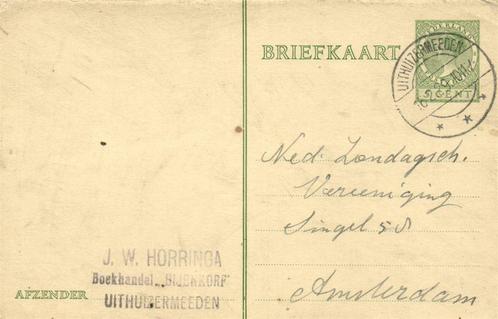 BRIEFKAART
NEDERLAND
5 CENT
UITHUIZERMEEDEN
Ned. Zondagsch.
Vereeniging
Singel 58
Amsterdam
J. W. HORRINGA
Boekhandel „BIJENKORF"
UITHUIZERMEEDEN
AFZENDER